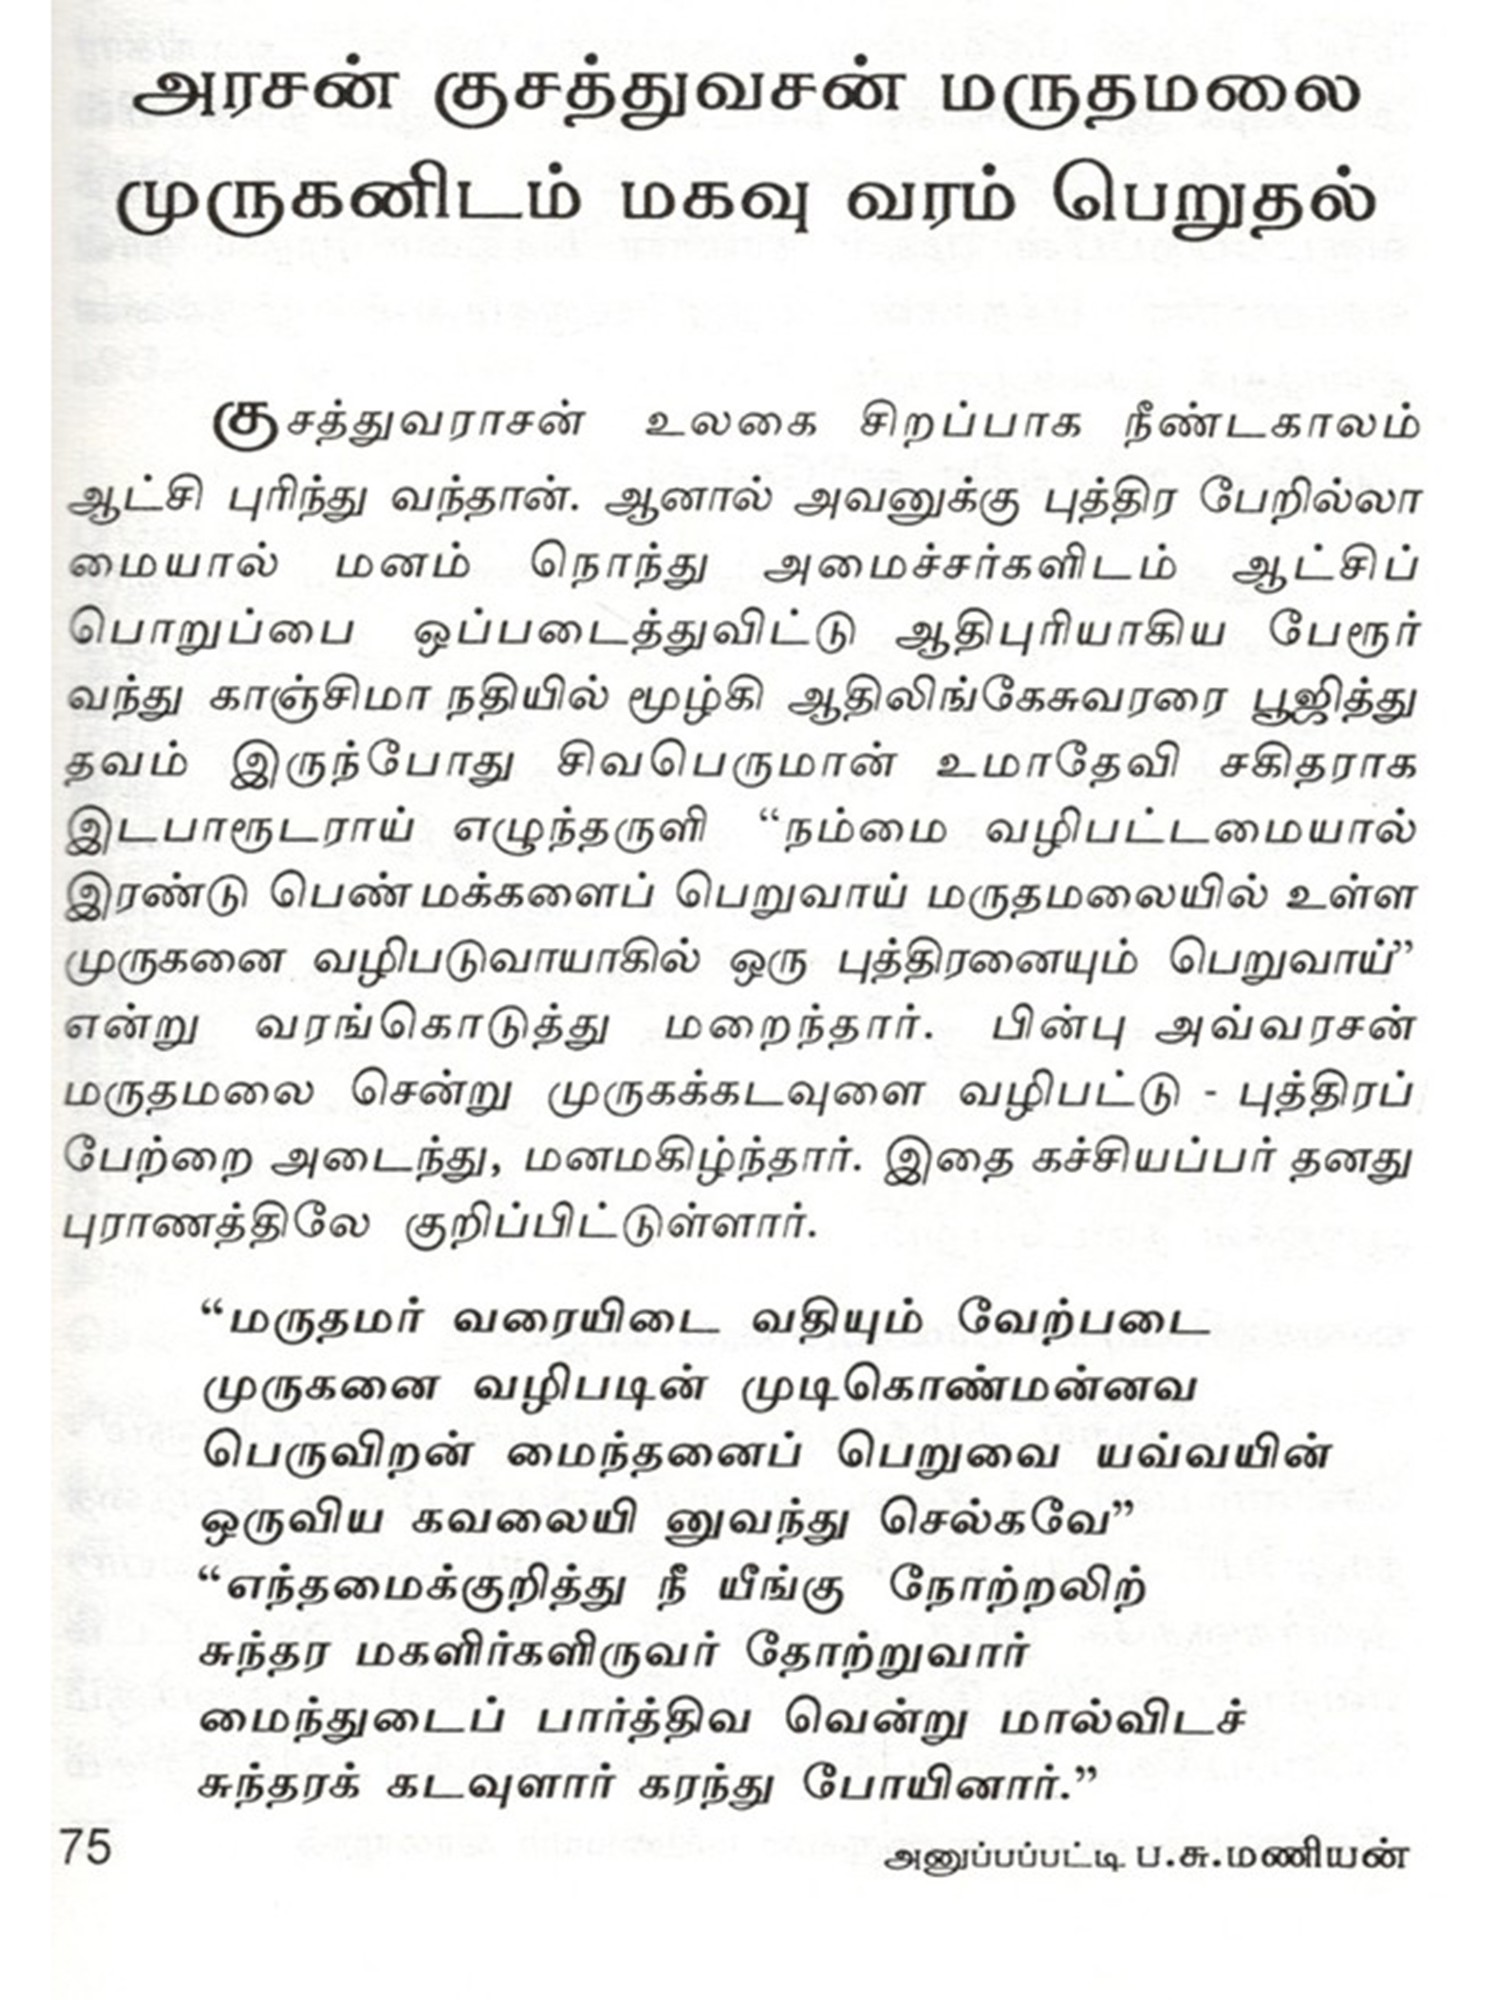 அரசன் குசத்துவசன் மருதமலை
முருகனிடம் மகவு வரம் பெறுதல்
குசத்துவராசன் உலகை சிறப்பாக நீண்டகாலம்
ஆட்சி புரிந்து வந்தான். ஆனால் அவனுக்கு புத்திர பேறில்லா
மையால் மனம் நொந்து அமைச்சர்களிடம் ஆட்சிப்
பொறுப்பை ஒப்படைத்துவிட்டு ஆதிபுரியாகிய பேரூர்
வந்து காஞ்சிமா நதியில் மூழ்கி ஆதிலிங்கேசுவரரை பூஜித்து
தவம் இருந்போது சிவபெருமான் உமாதேவி சகிதராக
இடபாரூடராய் எழுந்தருளி “நம்மை வழிபட்டமையால்
இரண்டு பெண்மக்களைப் பெறுவாய் மருதமலையில் உள்ள
முருகனை வழிபடுவாயாகில் ஒரு புத்திரனையும் பெறுவாய்”
என்று வரங்கொடுத்து மறைந்தார். பின்பு அவ்வரசன்
மருதமலை சென்று முருகக்கடவுளை வழிபட்டு - புத்திரப்
பேற்றை அடைந்து, மனமகிழ்ந்தார். இதை கச்சியப்பர் தனது
புராணத்திலே குறிப்பிட்டுள்ளார்.
“மருதமர் வரையிடை வதியும் வேற்படை
முருகனை வழிபடின் முடிகொண்மன்னவ
பெருவிறன் மைந்தனைப் பெறுவை யவ்வயின்
ஒருவிய கவலையி னுவந்து செல்கவே”
“எந்தமைக்குறித்து நீ யீங்கு நோற்றலிற்
சுந்தர மகளிர்களிருவர் தோற்றுவார்
மைந்துடைப் பார்த்திவ வென்று மால்விடச்
சுந்தரக் கடவுளார் கரந்து போயினார்.”
75 அனுப்பப்பட்டி ப.சு.மணியன்